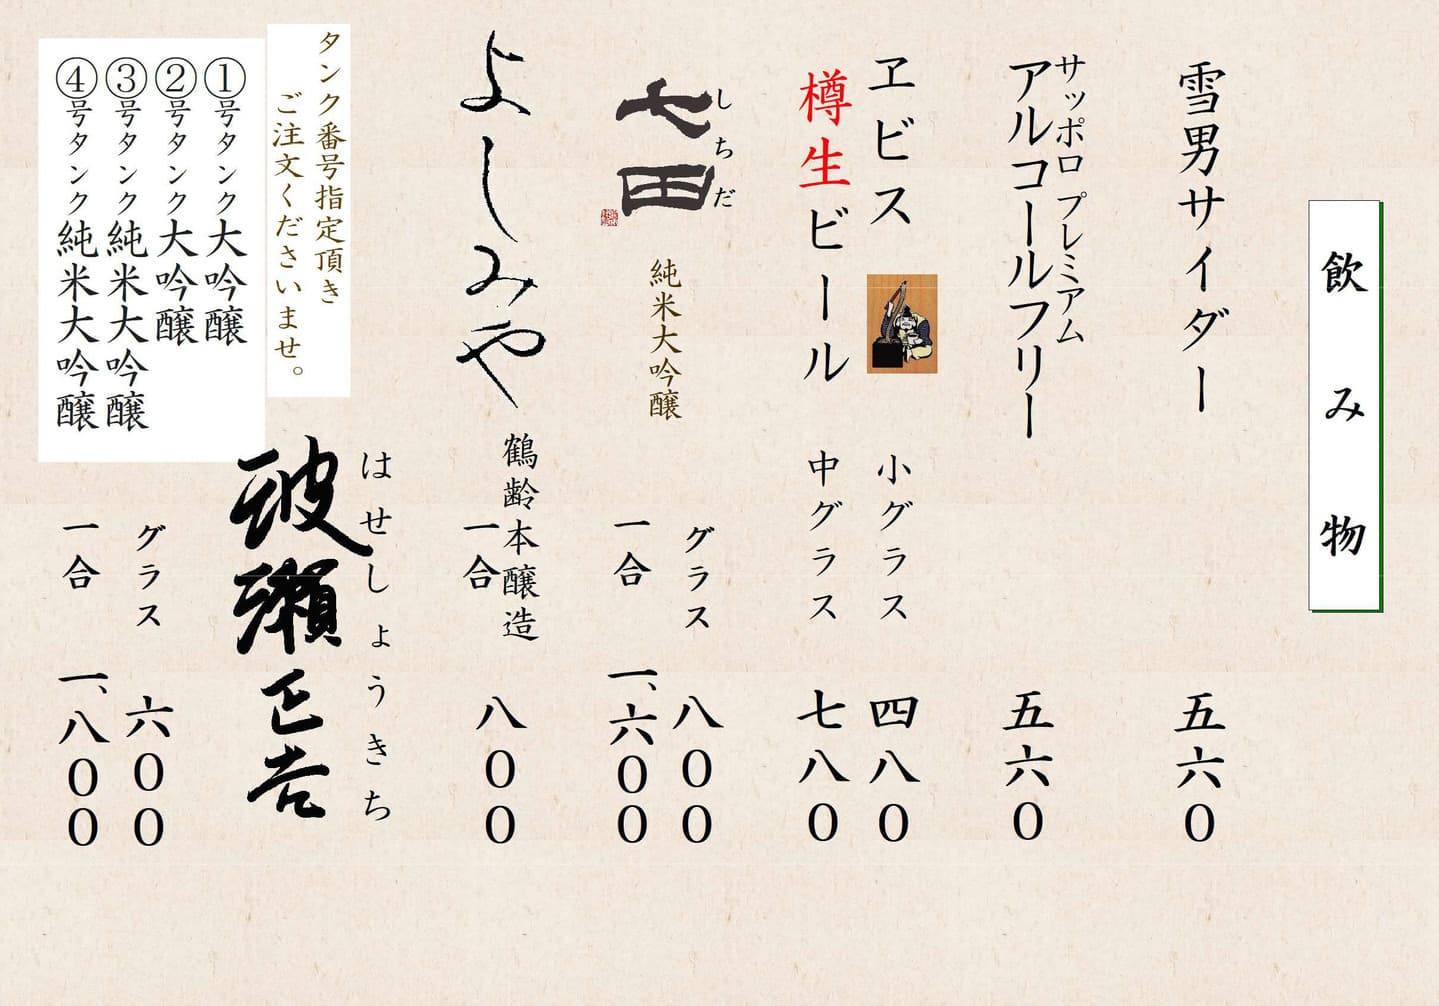 飲み物
雪男サイダー
五六〇
サッポロ プレミアム
アルコールフリー
五六〇
ヱビス
樽生ビール
小グラス 四八〇
中グラス 七八〇
しちだ
七田
純米大吟醸
グラス 八〇〇
一合 一、六〇〇
よしみや
鶴齢本醸造
一合 八〇〇
はせしょうきち
タンク番号指定頂き
ご注文くださいませ。
①号タンク大吟醸
②号タンク大吟醸
③号タンク純米大吟醸
④号タンク純米大吟醸
グラス 六〇〇
一合 一、八〇〇